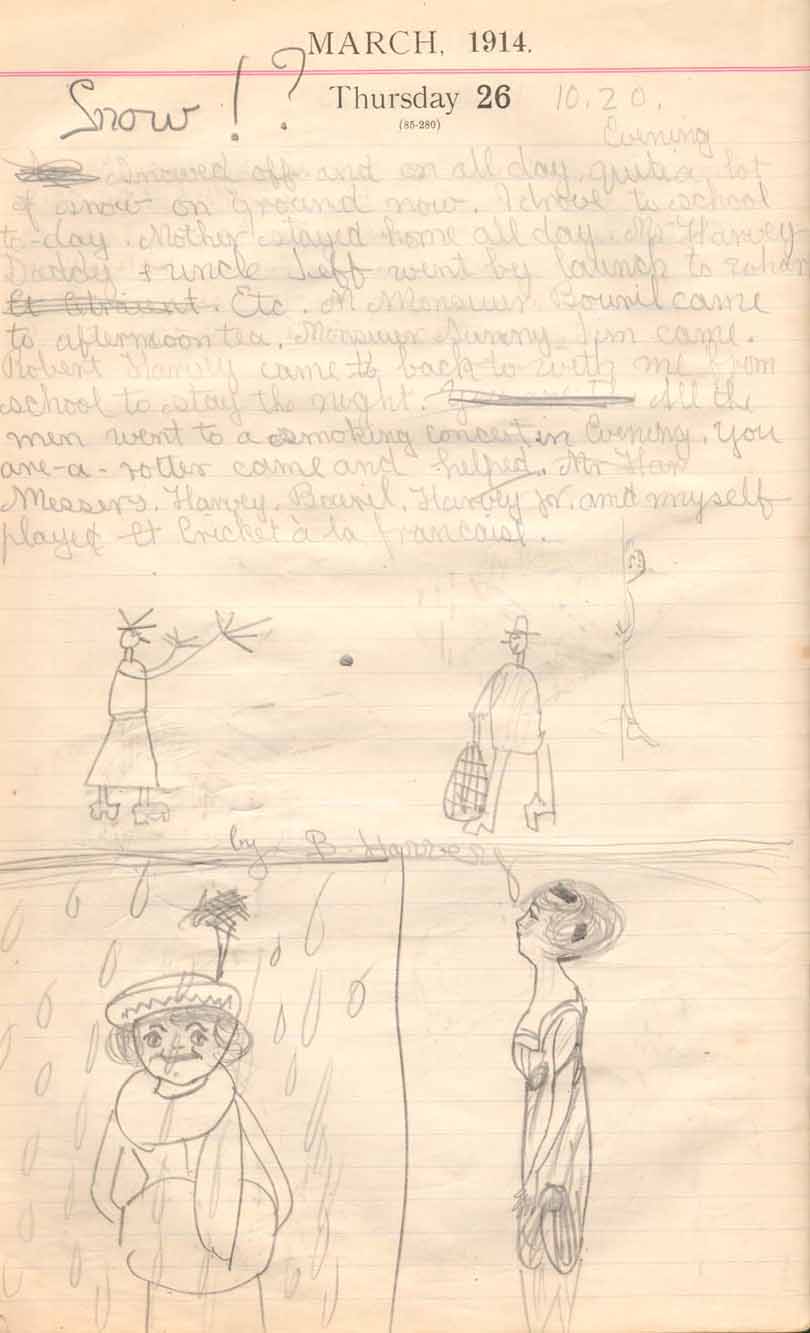 MARCH, 1914.
Snow!? Thursday 26 10.20,
(85-280)
Evening
Snowed off and on all day, quite a lot
of snow on ground now. I drove to school
to-day. Mother stayed home all day. Mr Harvey
Daddy & uncle Jeff went by launch to
Etc. M Monsieur Bouril came
to afternoon tea. Monsieur Sunny Jim came.
Robert Harvey came to back to with me from
school to stay the night. All the
men went to a smoking concert in Evening. You
are-a-rotter came and helped. Mr Har
Messers. Harvey, Bouril, Harvey Jr. and myself
played Et Cricket à la francaise.
by B. Harvey